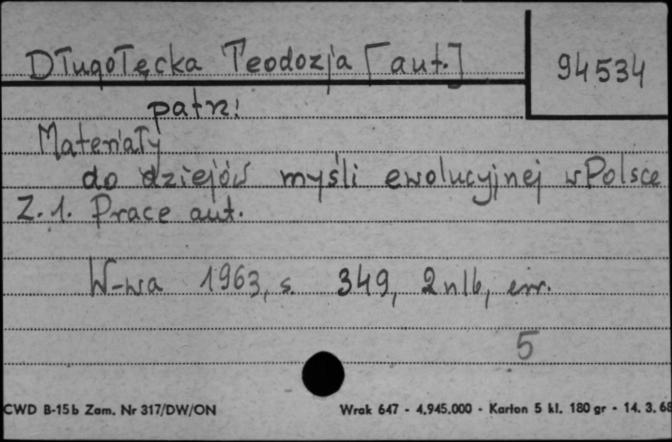 Długołęcka Teodozja [aut.]
94534
patrz:
Materiały
do dziejów myśli ewolucyjnej w Polsce
Z. 1. Prace aut.
W-wa 1963, s. 349, 2 nlb, err.
5
CWD B-15b Zam. Nr 317/DW/ON Wrak 647 - 4.945.000 - Karton 5 kl. 180 gr - 14. 3. 68